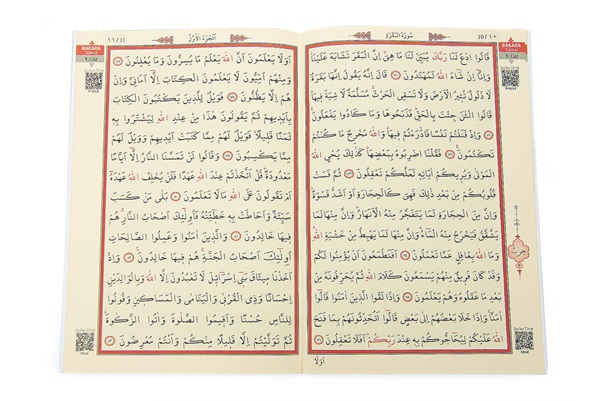 ١٠/10
سُورَةُ الْبَقَرَةِ
BAKARA
قَالُوا ادْعُ لَنَا رَبَّكَ يُبَيِّنْ لَنَا مَا هِيَ اِنَّ الْبَقَرَ تَشَابَهَ عَلَيْنَا
وَاِنَّٓا اِنْ شَٓاءَ اللّٰهُ لَمُهْتَدُونَ ﴿٧٠﴾ قَالَ اِنَّهُ يَقُولُ اِنَّهَا بَقَرَةٌ
لَا ذَلُولٌ تُثِيرُ الْاَرْضَ وَلَا تَسْقِي الْحَرْثَ مُسَلَّمَةٌ لَا شِيَةَ فِيهَا
قَالُوا الْـٰٔنَ جِئْتَ بِالْحَقِّ فَذَبَحُوهَا وَمَا كَادُوا يَفْعَلُونَ ﴿٧١﴾
وَاِذْ قَتَلْتُمْ نَفْسًا فَادّٰرَءْتُمْ فِيهَا وَاللّٰهُ مُخْرِجٌ مَا كُنْتُمْ
تَكْتُمُونَ ﴿٧٢﴾ فَقُلْنَا اضْرِبُوهُ بِبَعْضِهَا كَذٰلِكَ يُحْيِي اللّٰهُ
الْمَوْتٰى وَيُرِيكُمْ اٰيَاتِهِ لَعَلَّكُمْ تَعْقِلُونَ ﴿٧٣﴾ ثُمَّ قَسَتْ
قُلُوبُكُمْ مِنْ بَعْدِ ذٰلِكَ فَهِيَ كَالْحِجَارَةِ اَوْ اَشَدُّ قَسْوَةً
وَاِنَّ مِنَ الْحِجَارَةِ لَمَا يَتَفَجَّرُ مِنْهُ الْاَنْهَارُ وَاِنَّ مِنْهَا لَمَا
يَشَّقَّقُ فَيَخْرُجُ مِنْهُ الْمَٓاءُ وَاِنَّ مِنْهَا لَمَا يَهْبِطُ مِنْ خَشْيَةِ اللّٰهِ
وَمَا اللّٰهُ بِغَافِلٍ عَمَّا تَعْمَلُونَ ﴿٧٤﴾ اَفَتَطْمَعُونَ اَنْ يُؤْمِنُوا لَكُمْ
وَقَدْ كَانَ فَرِيقٌ مِنْهُمْ يَسْمَعُونَ كَلَامَ اللّٰهِ ثُمَّ يُحَرِّفُونَهُ مِنْ
بَعْدِ مَا عَقَلُوهُ وَهُمْ يَعْلَمُونَ ﴿٧٥﴾ وَاِذَا لَقُوا الَّذِينَ اٰمَنُوا قَالُٓوا
اٰمَنَّا وَاِذَا خَلَا بَعْضُهُمْ اِلٰى بَعْضٍ قَالُٓوا اَتُحَدِّثُونَهُمْ بِمَا فَتَحَ
اللّٰهُ عَلَيْكُمْ لِيُحَٓاجُّوكُمْ بِهِ عِنْدَ رَبِّكُمْ اَفَلَا تَعْقِلُونَ ﴿٧٦﴾
اَوَلَا
اَلْجُزْءُ الْاَوَّلُ
١١/11
BAKARA
اَوَلَا يَعْلَمُونَ اَنَّ اللّٰهَ يَعْلَمُ مَا يُسِرُّونَ وَمَا يُعْلِنُونَ ﴿٧٧﴾
وَمِنْهُمْ اُمِّيُّونَ لَا يَعْلَمُونَ الْكِتَابَ اِلَّٓا اَمَانِيَّ وَاِنْ
هُمْ اِلَّا يَظُنُّونَ ﴿٧٨﴾ فَوَيْلٌ لِلَّذِينَ يَكْتُبُونَ الْكِتَابَ
بِاَيْدِيهِمْ ثُمَّ يَقُولُونَ هٰذَا مِنْ عِنْدِ اللّٰهِ لِيَشْتَرُوا بِهِ
ثَمَنًا قَلِيلًا فَوَيْلٌ لَهُمْ مِمَّا كَتَبَتْ اَيْدِيهِمْ وَوَيْلٌ لَهُمْ
مِمَّا يَكْسِبُونَ ﴿٧٩﴾ وَقَالُوا لَنْ تَمَسَّنَا النَّارُ اِلَّٓا اَيَّامًا
مَعْدُودَةً قُلْ اَتَّخَذْتُمْ عِنْدَ اللّٰهِ عَهْدًا فَلَنْ يُخْلِفَ اللّٰهُ عَهْدَهُ
اَمْ تَقُولُونَ عَلَى اللّٰهِ مَا لَا تَعْلَمُونَ ﴿٨٠﴾ بَلٰى مَنْ كَسَبَ
سَيِّئَةً وَاَحَاطَتْ بِهِ خَطِٓيـَٔتُهُ فَاُولٰٓئِكَ اَصْحَابُ النَّارِ هُمْ
فِيهَا خَالِدُونَ ﴿٨١﴾ وَالَّذِينَ اٰمَنُوا وَعَمِلُوا الصَّالِحَاتِ
اُولٰٓئِكَ اَصْحَابُ الْجَنَّةِ هُمْ فِيهَا خَالِدُونَ ﴿٨٢﴾ وَاِذْ
اَخَذْنَا مِيثَاقَ بَنِٓي اِسْرَٓائِيلَ لَا تَعْبُدُونَ اِلَّا اللّٰهَ وَبِالْوَالِدَيْنِ
اِحْسَانًا وَذِي الْقُرْبٰى وَالْيَتَامٰى وَالْمَسَاكِينِ وَقُولُوا
لِلنَّاسِ حُسْنًا وَاَقِيمُوا الصَّلٰوةَ وَاٰتُوا الزَّكٰوةَ
ثُمَّ تَوَلَّيْتُمْ اِلَّا قَلِيلًا مِنْكُمْ وَاَنْتُمْ مُعْرِضُونَ ﴿٨٣﴾